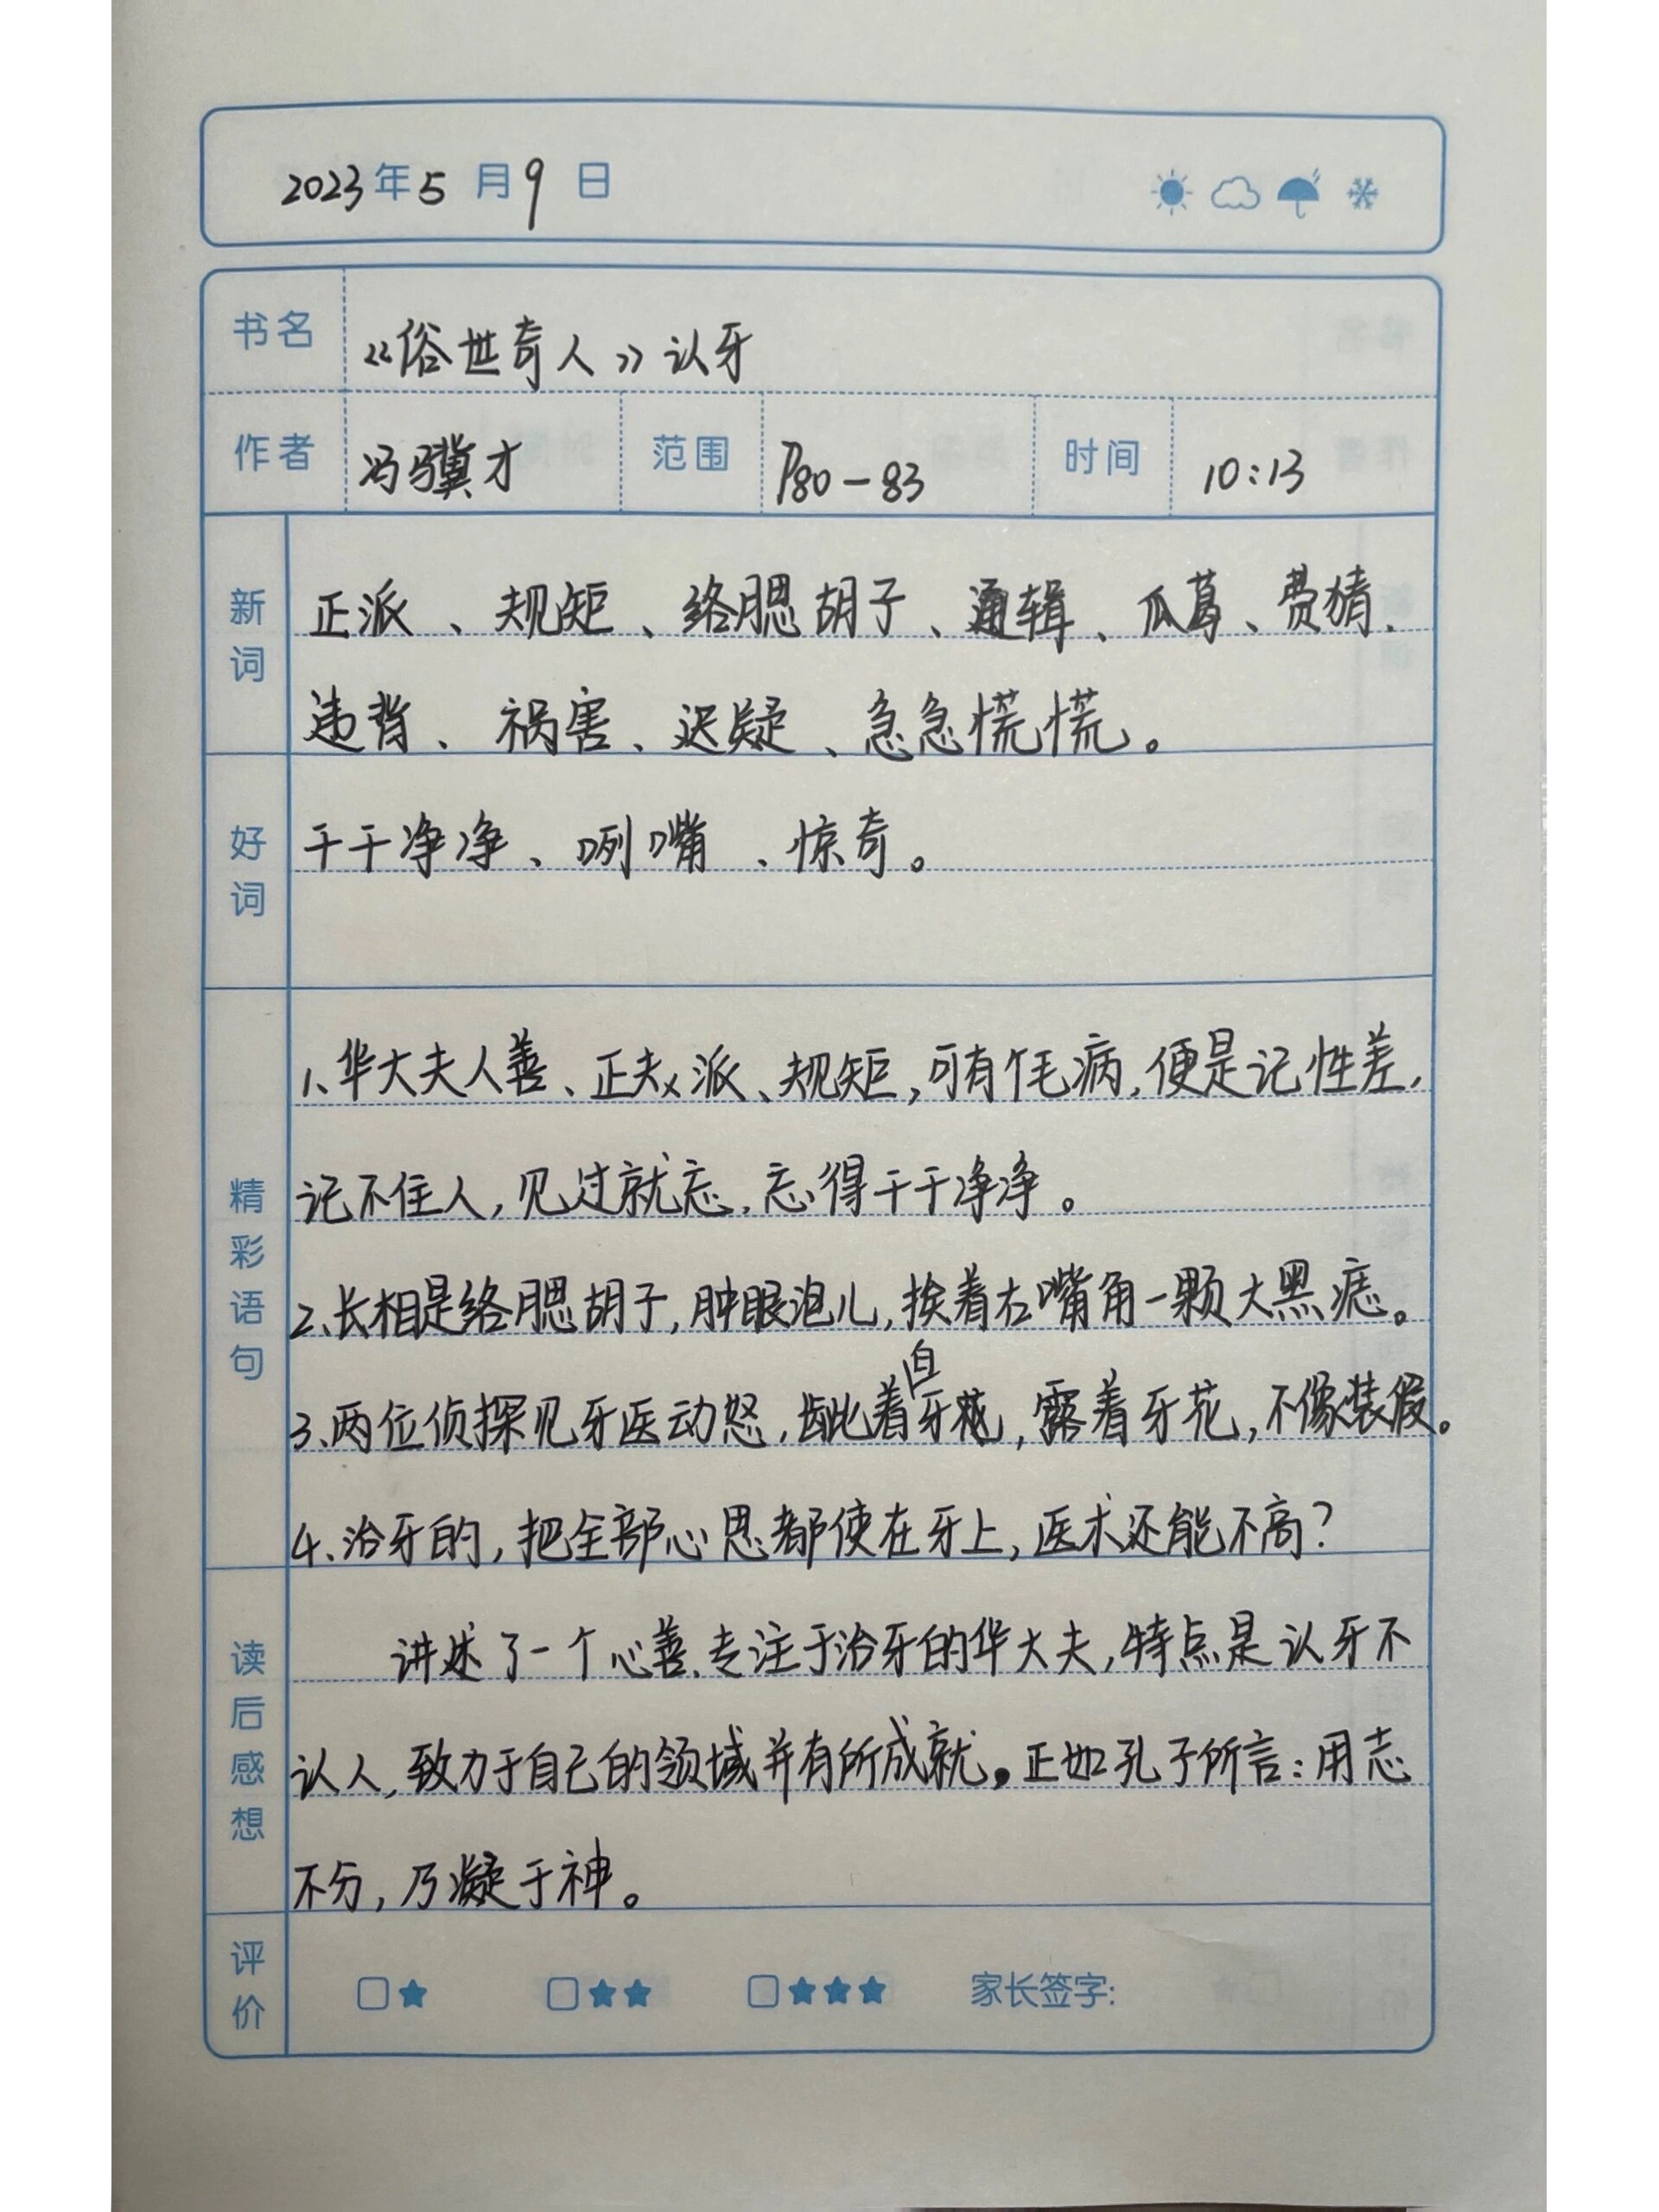 2023年5月9日
书名 《俗世奇人》认牙
作者 冯骥才 范围 P80-83 时间 10:13
新词 正派、规矩、络腮胡子、通辑、瓜葛、费猜、
违背、祸害、迟疑、急急慌慌。
好词 干干净净、咧嘴、惊奇。
精彩语句 1、华大夫人善、正派、规矩,可有个毛病,便是记性差,
记不住人,见过就忘,忘得干干净净。
2、长相是络腮胡子,肿眼泡儿,挨着右嘴角一颗大黑痣。
3、两位侦探见牙医动怒,龇着白牙,露着牙花,不像装假。
4、治牙的,把全部心思都使在牙上,医术还能不高?
读后感想 讲述了一个心善、专注于治牙的华大夫,特点是认牙不
认人,致力于自己的领域并有所成就。正如孔子所言:用志
不分,乃凝于神。
评价 家长签字: